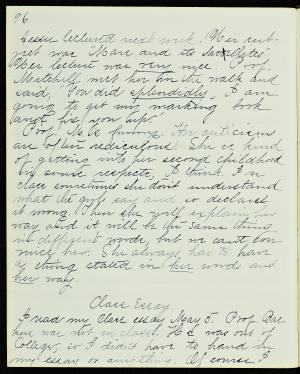 96
Jessie lectured next week. Her sub-
ject was "Mars and its Satellites"
Her lecture was very nice. Prof.
met her on the walk and
said, "You did splendidly, I am
going to get my marking book
and fix you up."
Prof. M. is funny. Her criticisms
are often rediculous. She is kind
of getting into her second childhood
in some respects, I think. In
class sometimes she don't understand
what the girls say and so declares
it wrong. Then she will explain her
way and it will be the same thing
in different words, but we can't con-
vince her. She always has to have
a thing stated in her words and
her way.
Class Essay
I read my class essay May 5. Prof.
was not in class. He was out of
College, so I didn't have to hand in
my essay or anything. Of course I